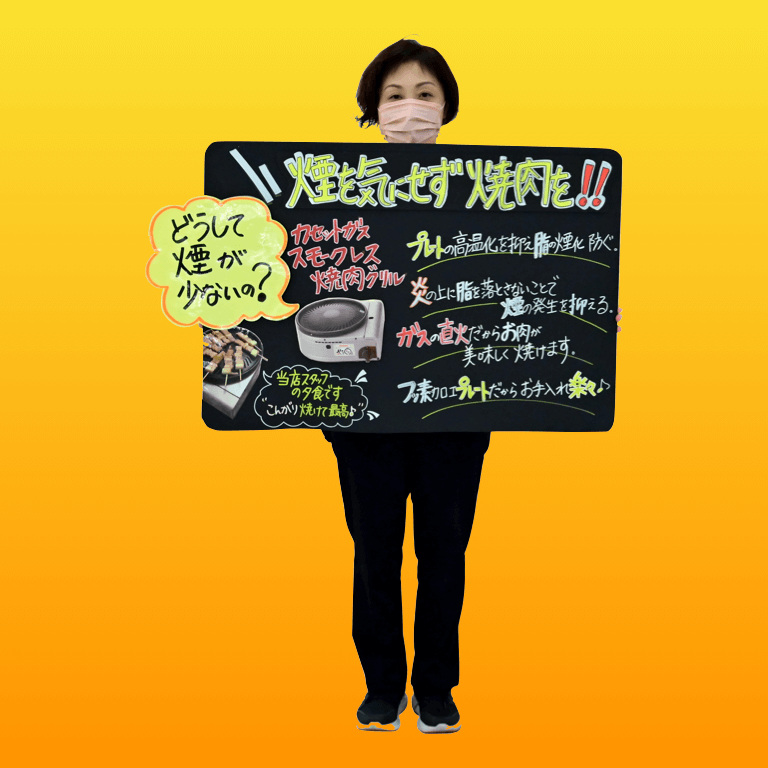 煙を気にせず焼肉を!!
どうして
煙が
少ないの?
カセットガス
スモークレス
焼肉グリル
プレートの高温化を抑え脂の煙化防ぐ。
炎の上に脂を落とさないことで
煙の発生を抑える。
ガスの直火だからお肉が
美味しく焼けます。
フッ素加工プレートだからお手入れ楽々♪
当店スタッフ
の夕食です
"こんがり焼けて最高♪"